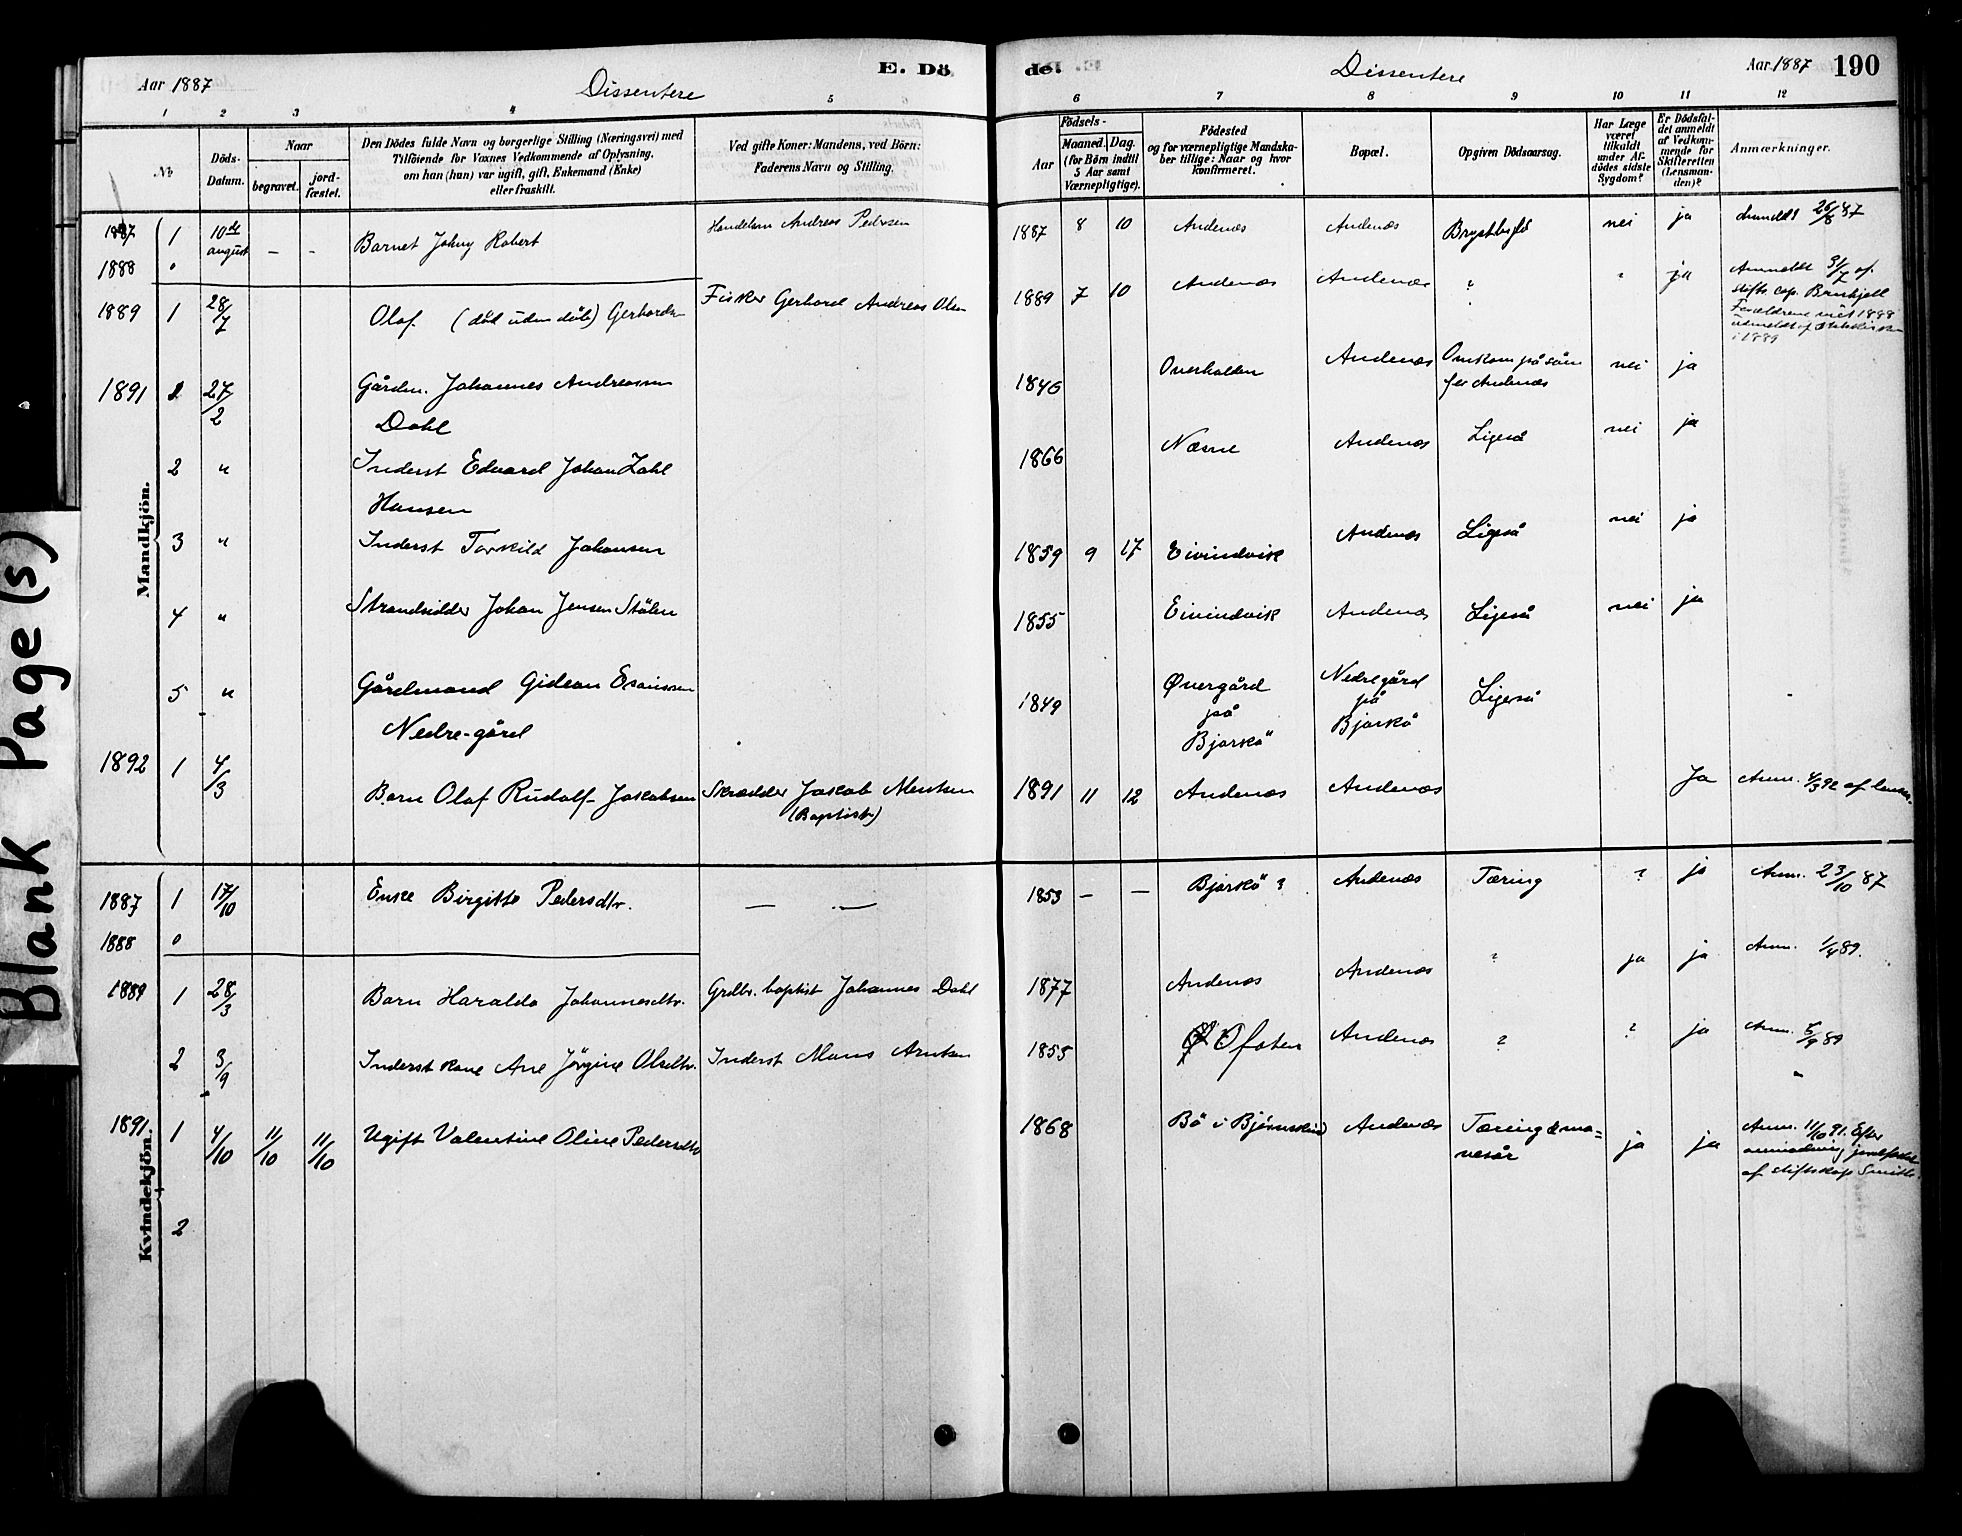 Aar 1887
Dissentere
E. Dö
de.
Dissentere
Aar 1887
190
1 2 3 4 5
6 7 8 9 10 11 12
No
Döds-
Datum.
Naar
begravet.
jord-
fæstet.
Den Dödes fulde Navn og borgerlige Stilling (Næringsvei) med
Tilföiende for Voxnes Vedkommende af Oplysning,
om han (hun) var ugift, gift, Enkemand (Enke)
eller fraskilt.
Ved gifte Koner: Mandens, ved Börn:
Faderens Navn og Stilling.
Födsels-
Aar
Maaned.
Dag.
(for Börn indtil
5 Aar samt
Værnepligtige).
Födested
og for værnepligtige Mandska-
ber tillige: Naar og hvor
konfirmeret.
Bopæl.
Opgiven Dödsaarsag.
Har Læge
været
tilkaldt
under Af-
dödes sidste
Sygdom?
Er Dödsfal-
det anmeldt
af Vedkom-
mende for
Skifteretten
(Lensman-
den)?
Anmærkninger.
Mandkjön.
1887 1 10de august - - Barnet Johny Robert Handelsm Andreas Pedersen 1887 8 10 Andenæs Andenæs nei ja Anmeldt 26/8 87
1888 0
1889 1 28/7 Olaf (död uden dåb) Gerhards. Fisker Gerhard Andreas Olsen 1889 7 10 Andenæs Andenæs ? ? ja Anmeldt 31/7 af
stifts cap.
Forældrene 1888
i 1889
1891 1 27/2 Gårdm. Johannes Andreassen
Dahl 1846 Overhalden Andenæs Omkom på søen
for Andenæs nei ja
2 " Inderst Edvard Johan Zahl
Hansen 1866 Næsne Andenæs Ligeså nei ja
3 " Inderst Torkild Johansen 1859 9 17 Eivindvik Andenæs Ligeså nei ja
4 " Strandsidder Johan Jensen Stölen 1855 Eivindvik Andenæs Ligeså nei ja
5 " Gårdmand Gideon Esaiassen
Nedre-gård 1849 Øvergård
på
Bjarkö Nedregård
på
Bjarkö Ligeså
1892 1 4/3 Barn Olaf Rudolf Jakobsen Skrædder Jakob Mentsen
(Baptist) 1891 11 12 Andenæs Andenæs Ja Anm. 4/3 92 af lensm.
Kvindekjön.
1887 1 17/10 Enke Birgitte Pedersdtr. — — 1853 — — Bjarkö ? Andenæs Tæring ? ja Anm. 23/10 87
1888 0
1889 1 28/3 Barn Haralda Johannesdtr. Grdbr. baptist Johannes Dahl 1877 Andenæs Andenæs ? ja ja Anm. 1/4 89.
2 3/9 Inderst kone Ane Jörgine Olsdtr. Inderst Mons Arntsen 1855 Ofoten Andenæs ? ? ja Anm. 5/9 89
1891 1 4/10 11/10 11/10 Ugift Valentine Oline Pedersdtr 1868 Bö i Bjørnskind Andenæs Tæring ja ja Anm. 11/10 91. Efter
anmodning jordfæstet
af stiftskap Smith.
2
Blank Page(s)